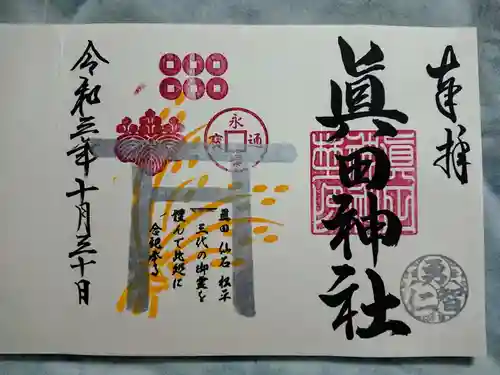 奉拝
眞田神社
智
仁
永
通
寳
眞田 仙石 松平
三代の御霊を
謹んで此処に
合祀奉る
令和三年十月三十日